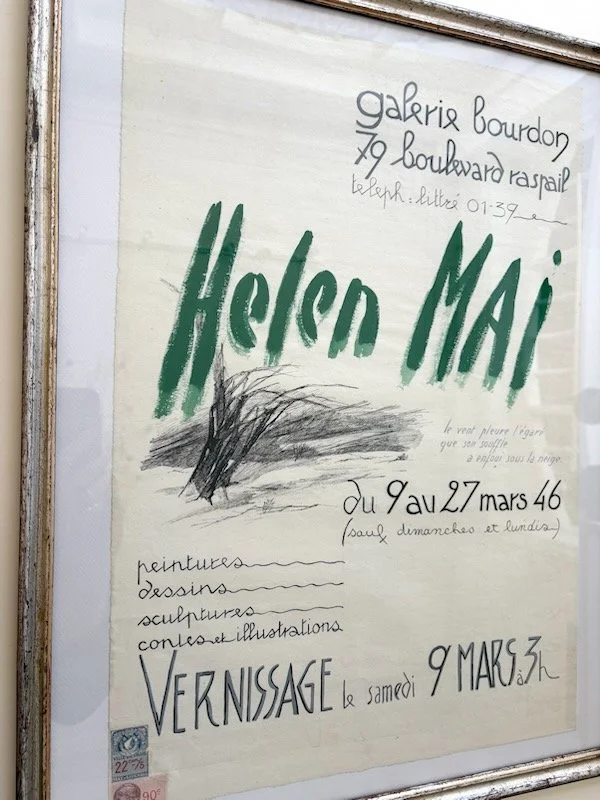 galerie bourdon
79 boulevard raspail
teleph: littré 01-39
Helen MAi
le vent pleure l'égaré
que son souffle
a enfoui sous la neige
du 9 au 27 mars 46
(sauf dimanches et lundis)
peintures
dessins
sculptures
contes et illustrations
VERNISSAGE le samedi 9 MARS à 3h
22
90c